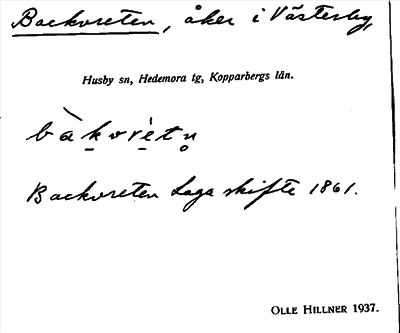 Backvreten, åker i Västerby,
Husby sn, Hedemora tg, Kopparbergs län.
bàk̠vrè̠tn̥
Backvreten Laga skifte 1861.
OLLE HILLNER 1937.